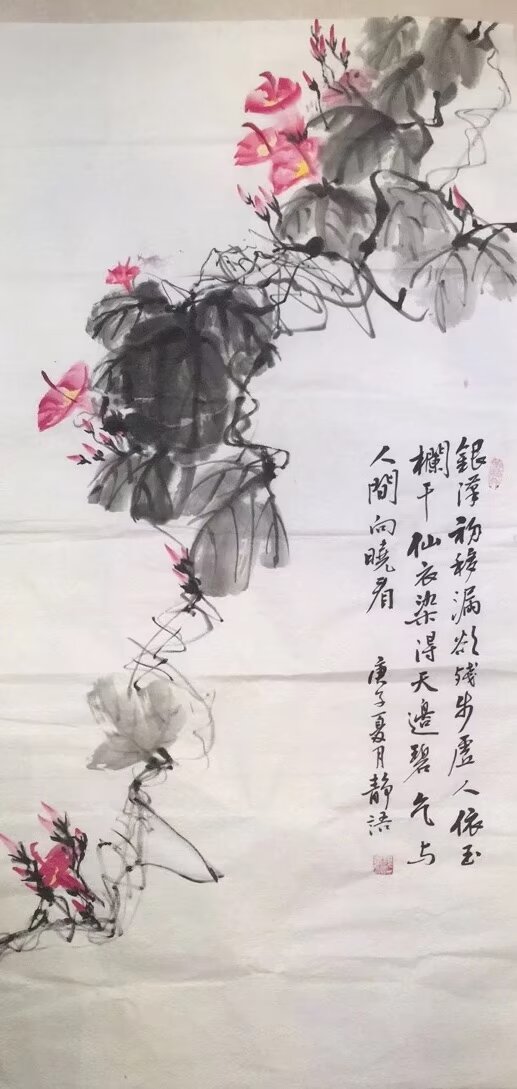 銀漢初移漏欲殘步虛人依玉
欄干仙衣染得天邊碧乞与
人間向曉看
庚子夏月靜語